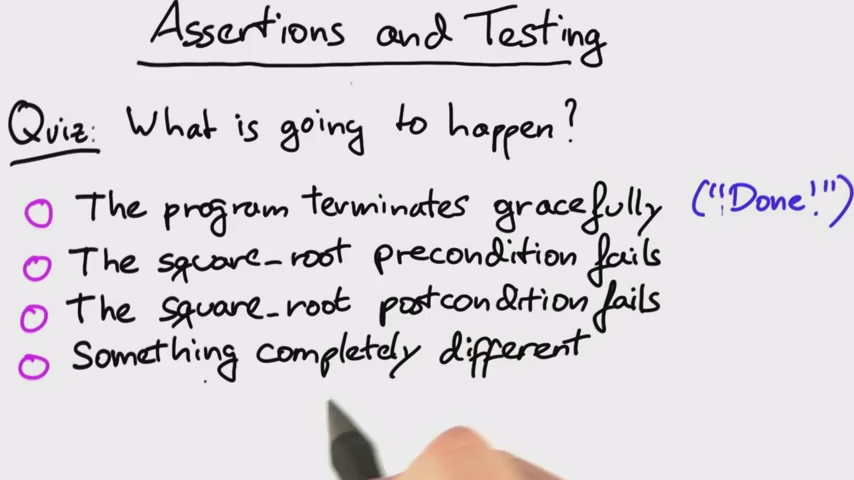 Assertions and Testing
Quiz: What is going to happen?
The program terminates gracefully ("Done!")
The square_root precondition fails
The square_root postcondition fails
Something completely different